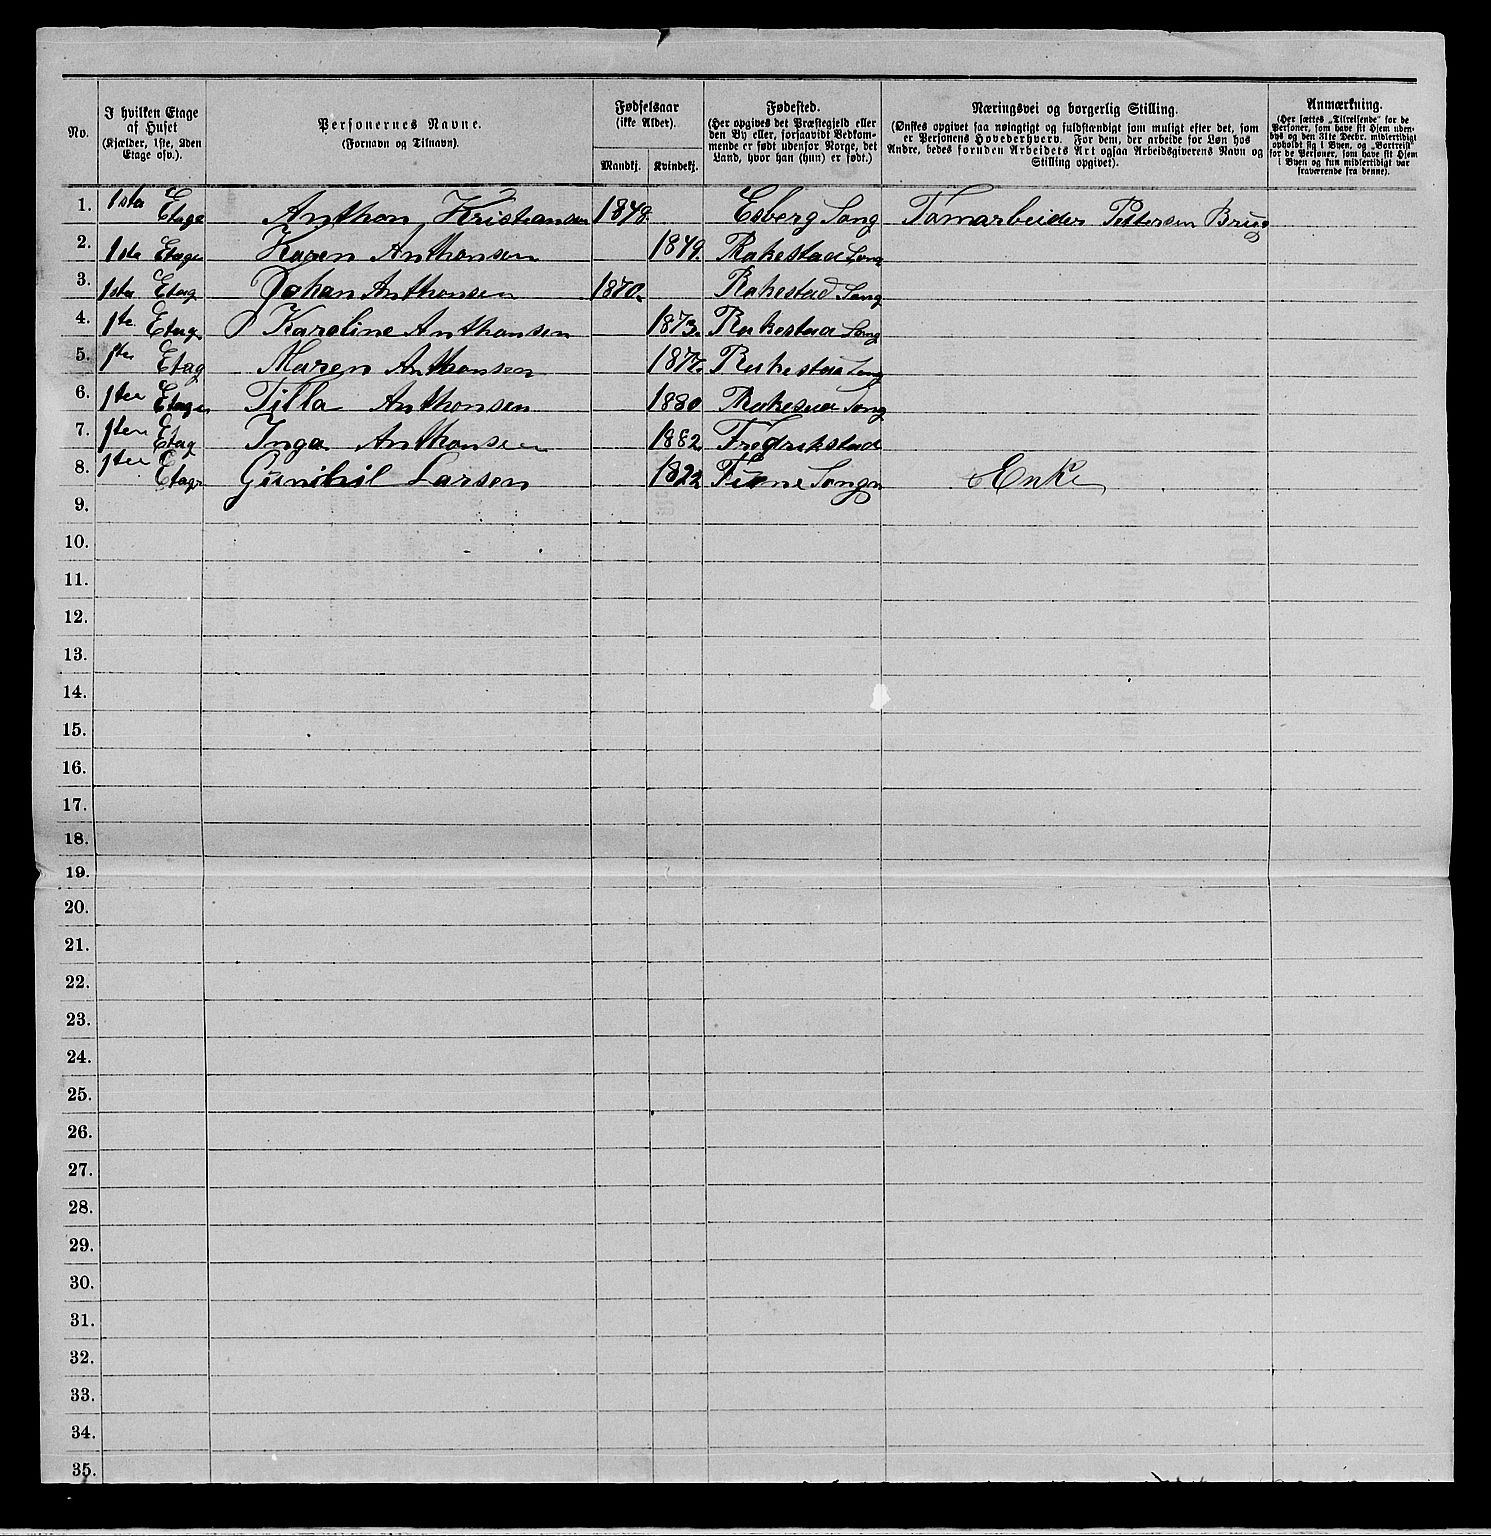 No.
I hvilken Etage af Huset (Kjælder, 1ste, 2den Etage osv.).
Personernes Navne. (Fornavn og Tilnavn).
Fødselsaar (ikke Alder).
Mandkj. Kvindekj.
Fødested. (Her opgives det Præstegjeld eller den By eller, forsaavidt Vedkommende er født udenfor Norge, det Land, hvor han (hun) er født.)
Næringsvei og borgerlig Stilling. (Ønskes opgivet saa nøiagtigt og fuldstændigt som muligt efter det, som er Personens Hovederhverv. For dem, der arbeide for Løn hos Andre, bedes foruden Arbeidets Art ogsaa Arbeidsgiverens Navn og Stilling opgivet).
Anmærkning. (Her sættes „Tilreisende“ for de Personer, som have sit Hjem udenbys og den 31te Decbr. midlertidigt opholdt sig i Byen, og „Bortreist“ for de Personer, som have sit Hjem i Byen og kun midlertidigt var fraværende fra denne).
1. 1ste Etage Anthon Kristiansen 1848. Esberg Song Tomarbeider Pettersen Brug
2. 1ste Etage Karen Anthonsen 1849. Rakestad Song
3. 1ste Etag Johan Anthonsen 1870. Rakestad Song
4. 1te Etage Karoline Anthonsen 1873. Rakestad Song
5. 1ten Etag Maren Anthonsen 1877. Rakestad Song
6. 1ten Etagen Tilla Anthonsen 1880 Song
7. 1ten Etag Inga Anthonsen 1882 Fredrikstad
8. 1ten Etage Gunihil Larsen 1822 Songn Enke
9.
10.
11.
12.
13.
14.
15.
16.
17.
18.
19.
20.
21.
22.
23.
24.
25.
26.
27.
28.
29.
30.
31.
32.
33.
34.
35.